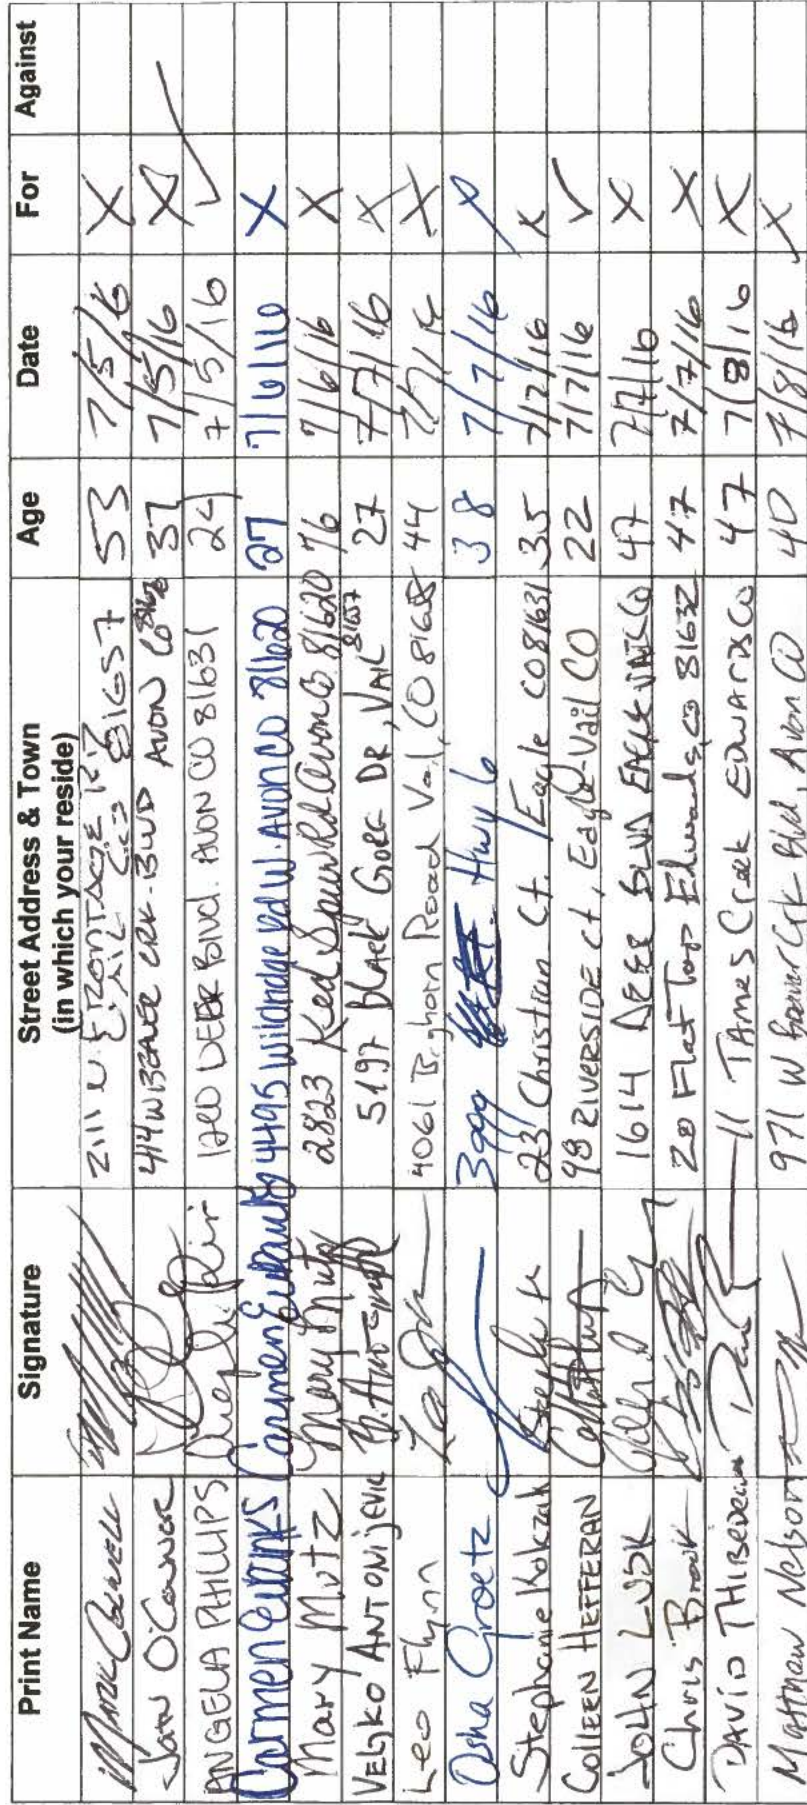 Print Name Signature Street Address & Town (in which your reside) Age Date For Against
MARK 2111 N. FRONTAGE RD VAIL CO 81657 53 7/5/16 X
JOHN O'CONNOR 414 W BEAVER CRK. BLVD AVON CO 81620 37 7/5/16 X
ANGELA PHILLIPS DEER Blvd. AVON CO 81631 7/5/16 ✓
Carmen Eubanks Carmen Eubanks 4495 Wildridge Rd W. AVON CO 81620 27 7/6/16 X
Mary Mutz Mary Mutz 2823 Red Spur Rd Avon Co 81620 76 7/6/16 X
VELJKO ANTONIJEVIC 5197 BLACK GORE DR, VAIL 81657 27 7/7/16 X
Leo Flynn 4061 Bighorn Road Vail, CO 44 7/7/16 X
Osha Groetz Hwy 6 38 7/7/16 X
Stephanie 23 Christian Ct. Eagle CO 81631 35 7/7/16 X
COLLEEN HEFFERAN 98 RIVERSIDE Ct, Eagle-Vail CO 22 7/7/16 ✓
JOHN LUSK 1614 DEER BLVD EAGLE VAIL CO 47 7/7/16 X
Chris Brook 20 Flat Top Edwards, CO 81632 47 7/7/16 X
DAVID 11 JAMES Creek EDWARDS CO 47 7/8/16 X
Matthew Nelson 971 W Beaver Crk Blvd, Avon CO 40 7/8/16 X